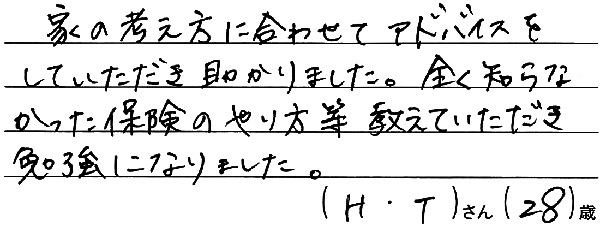 家の考え方に合わせてアドバイスを
していただき助かりました。全く知らな
かった保険のやり方等教えていただき
勉強になりました。
(H・T)さん(28)歳